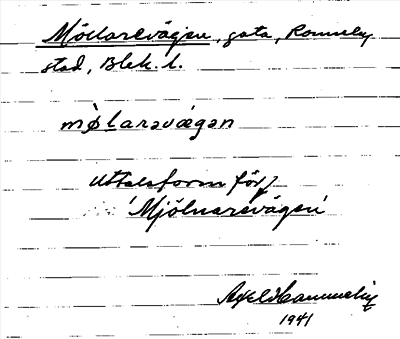 Möllarevägen, gata, Ronneby
stad, Blek. l.
mø̀larəvǽgən
uttalsform för
'Mjölnarevägen'
1941